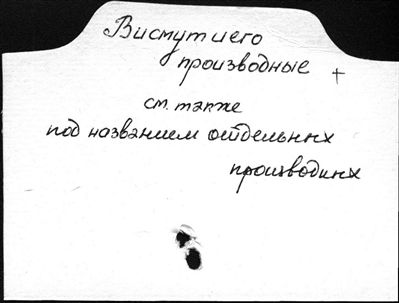 Висмут и его
производные +
см. также
под названием отдельных
производных